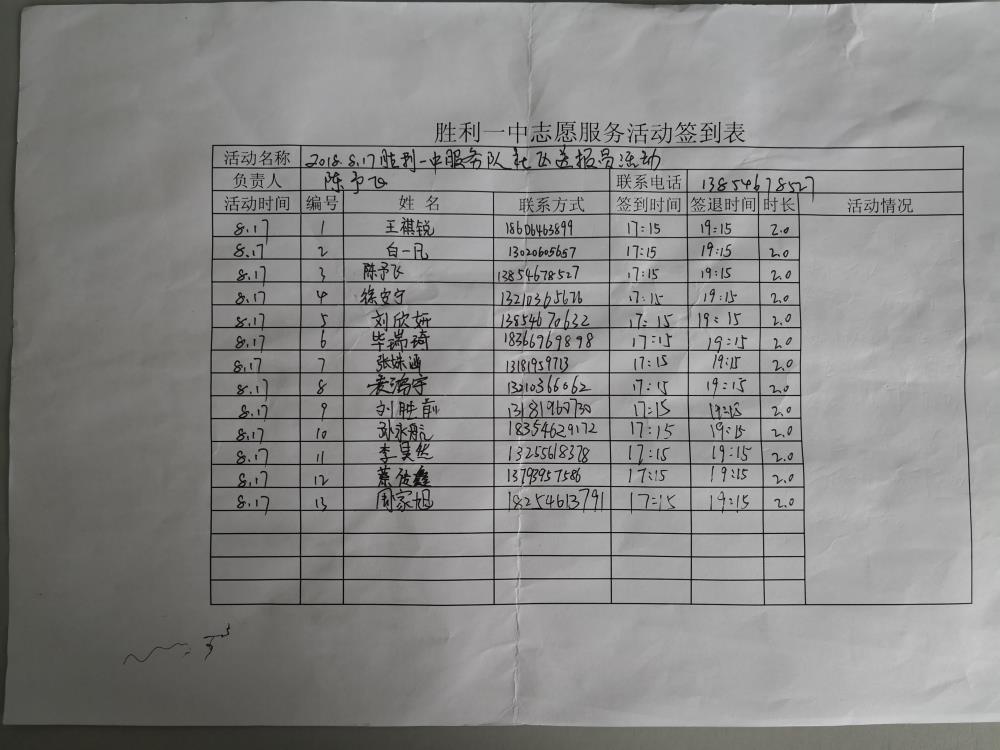 胜利一中志愿服务活动签到表
活动名称 2018.8.17胜利一中服务队 送报员活动
负责人 陈予飞 联系电话 13854678527
活动时间 编号 姓 名 联系方式 签到时间 签退时间 时长 活动情况
8.17 1 王祺锐 18606463899 17:15 19:15 2.0
8.17 2 白一凡 13020605657 17:15 19:15 2.0
8.17 3 陈予飞 13854678527 17:15 19:15 2.0
8.17 4 徐安宁 13210365676 17:15 19:15 2.0
8.17 5 刘欣妍 13854670632 17:15 19:15 2.0
8.17 6 毕瑞琦 18366769898 17:15 19:15 2.0
8.17 7 张姝涵 13181959713 17:15 19:15 2.0
8.17 8 鸿宇 13210366062 17:15 19:15 2.0
8.17 9 刘胜前 13181960730 17:15 19:15 2.0
8.17 10 孙永航 18354629172 17:15 19:15 2.0
8.17 11 李昊然 13255618378 17:15 19:15 2.0
8.17 12 蔡依鑫 13793957586 17:15 19:15 2.0
8.17 13 周家旭 18254613791 17:15 19:15 2.0